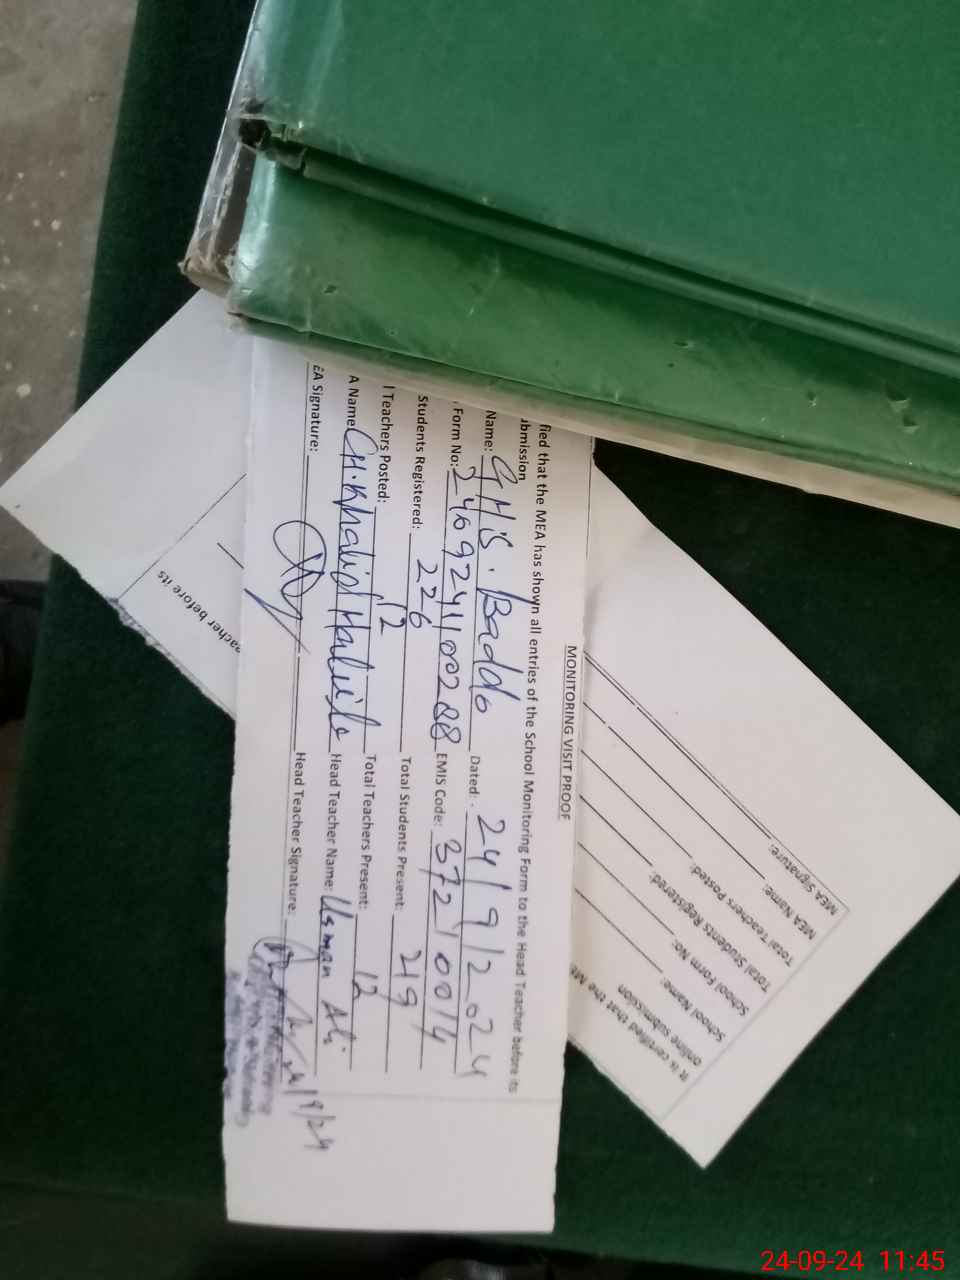 MONITORING VISIT PROOF
fied that the MEA has shown all entries of the School Monitoring Form to the Head Teacher before its
ubmission
Name: G.H.S. Baddo Dated: 24/9/2024
Form No: EMIS Code: 37210014
Students Registered: 226 Total Students Present: 219
l Teachers Posted: 12 Total Teachers Present: 12
A Name CH. Khalid Head Teacher Name: Usman Ali
EA Signature: Head Teacher Signature:
24/9/24
eacher before its
It is certified that the ME
online submission
School Name:
School Form No:
Total Students Registered:
Total Teachers Posted:
MEA Name:
MEA Signature:
24-09-24 11:45